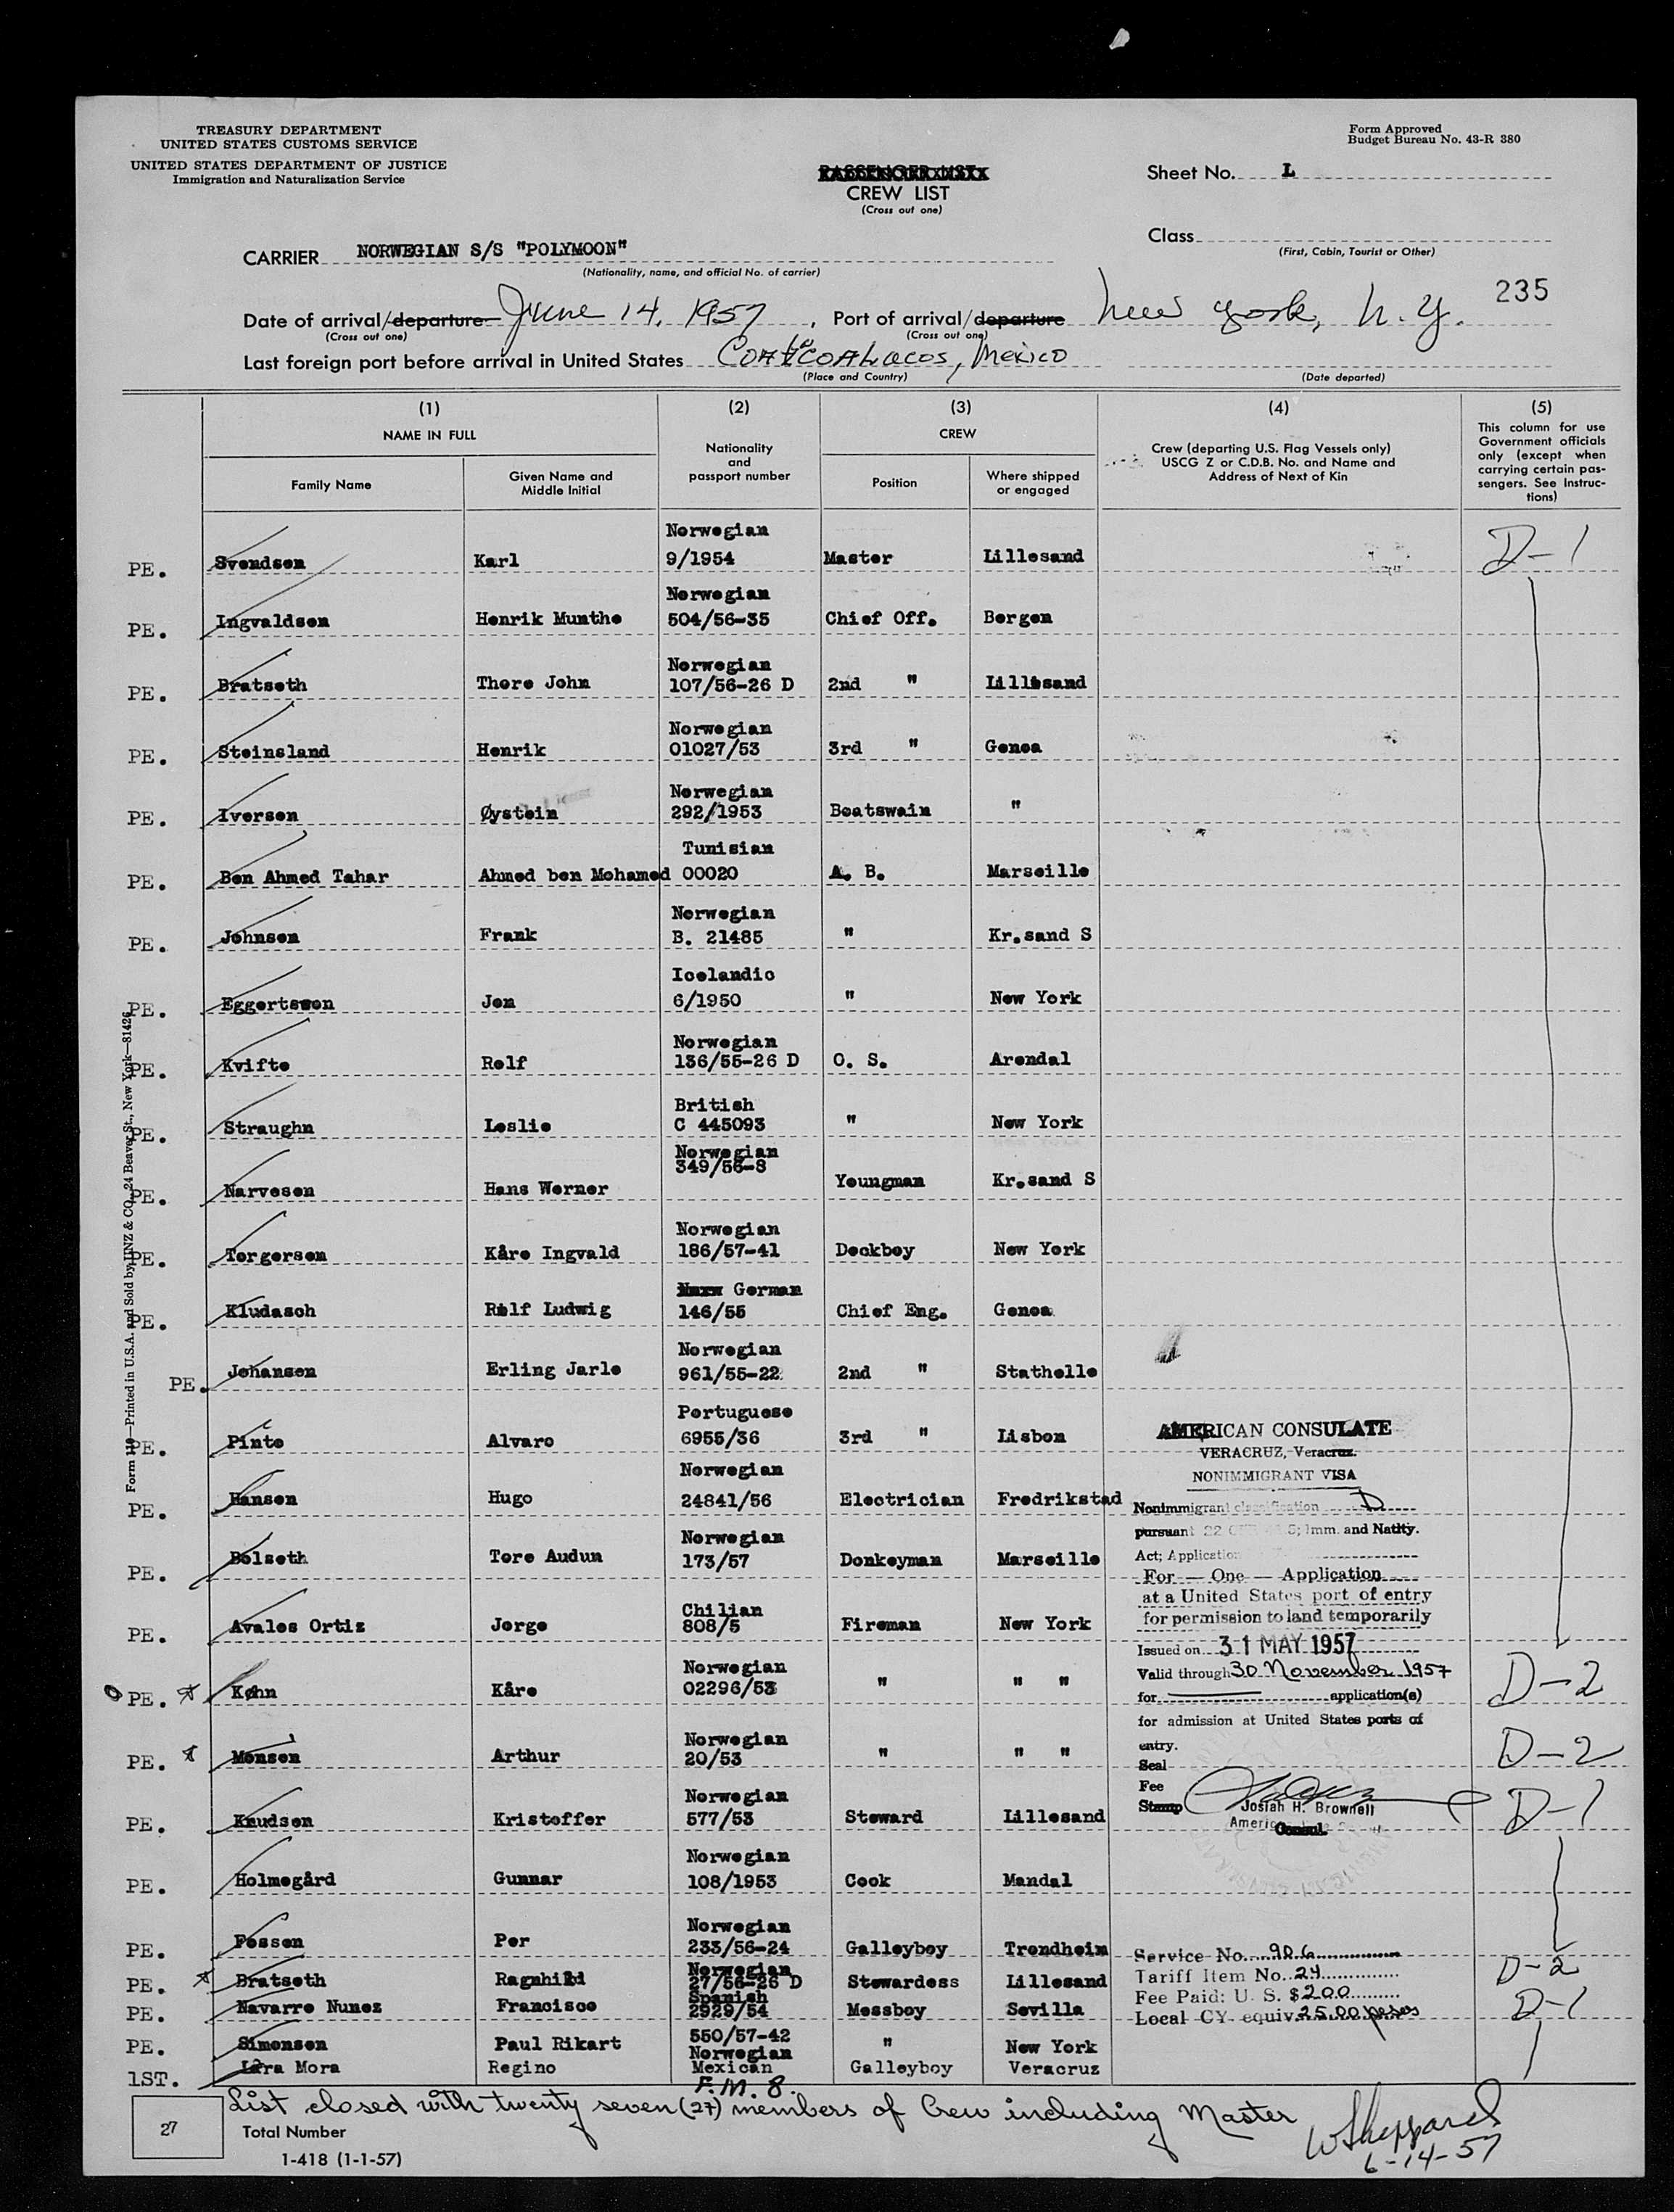 TREASURY DEPARTMENT
UNITED STATES CUSTOMS SERVICE
UNITED STATES DEPARTMENT OF JUSTICE
Immigration and Naturalization Service
Form Approved
Budget Bureau No. 43-R 380
PASSENGER LIST
CREW LIST
(Cross out one)
Sheet No. L
Class
(First, Cabin, Tourist or Other)
CARRIER NORWEGIAN S/S "POLYMOON"
(Nationality, name, and official No. of carrier)
235
Date of arrival/departure June 14, 1957, Port of arrival/departure New York, N.Y.
(Cross out one) (Cross out one)
Last foreign port before arrival in United States Mexico
(Place and Country) (Date departed)
(1) (2) (3) (4) (5)
NAME IN FULL
Nationality and passport number
CREW
Crew (departing U.S. Flag Vessels only)
USCG Z or C.D.B. No. and Name and
Address of Next of Kin
This column for use
Government officials
only (except when
carrying certain pas-
sengers. See Instruc-
tions)
Family Name
Given Name and
Middle Initial
Position
Where shipped
or engaged
Norwegian
PE. Svendsen Karl 9/1954 Master Lillesand D-1
Norwegian
PE. Ingvaldsen Henrik Munthe 504/56-35 Chief Off. Bergen
Norwegian
PE. Bratseth Thore John 107/56-26 D 2nd " Lillesand
Norwegian
PE. Steinsland Henrik 01027/53 3rd " Genoa
Norwegian
PE. Iversen Øystein 292/1953 Boatswain "
Tunisian
PE. Ben Ahmed Tahar Ahmed ben Mohamed 00020 A. B. Marseille
Norwegian
PE. Johnsen Frank B. 21485 " Kr.sand S
Icelandic
PE. Eggertsson Jon 6/1950 " New York
Norwegian
PE. Kvifte Rolf 136/55-26 D O. S. Arendal
British
PE. Straughn Leslie C 445093 " New York
Norwegian
349/56-8
PE. Narvesen Hans Werner Youngman Kr.sand S
Norwegian
PE. Torgersen Kåre Ingvald 186/57-41 Deckboy New York
German
PE. Kludasch Rolf Ludwig 146/55 Chief Eng. Genoa
Norwegian
PE. Johansen Erling Jarle 961/55-22 2nd " Stathelle
Portuguese
PE. Pinto Alvaro 6955/36 3rd " Lisbon
Norwegian
PE. Hansen Hugo 24841/56 Electrician Fredrikstad
Norwegian
PE. Bolseth Tore Audun 173/57 Donkeyman Marseille
Chilian
PE. Avalos Ortiz Jorge 808/5 Fireman New York
Norwegian
PE. Køhn Kåre 02296/53 " " " D-2
Norwegian
PE. Monsen Arthur 20/53 " " " D-2
Norwegian
PE. Knudsen Kristoffer 577/53 Steward Lillesand D-1
Norwegian
PE. Holmegård Gunnar 108/1953 Cook Mandal
Norwegian
PE. Fossen Per 233/56-24 Galleyboy Trondheim
Norwegian
PE. Bratseth Ragnhild 27/56-26 D Stewardess Lillesand D-2
Spanish
PE. Navarro Nunez Francisco 2929/54 Messboy Sevilla D-1
PE. Simonsen Paul Rikart 550/57-42 " New York
Norwegian
1ST. Lara Mora Regino Mexican Galleyboy Veracruz
F.M. 8.
AMERICAN CONSULATE
VERACRUZ, Veracruz.
NONIMMIGRANT VISA
Nonimmigrant classification D
pursuant 22 Imm. and Natlty.
Act; Application
For — One — Application
at a United States port of entry
for permission to land temporarily
Issued on 31 MAY 1957
Valid through 30 November 1957
for application(s)
for admission at United States ports of
entry.
Seal
Fee
Stamp
Josiah H. Brownell
Consul.
Service No. 906
Tariff Item No. 24
Fee Paid: U. S. $2.00
Local CY. equiv. 25.00 pesos
List closed with twenty seven (27) members of Crew including Master
W Sheppard
6-14-57
27
Total Number
1-418 (1-1-57)
Form —Printed in U.S.A. and Sold by UNZ & CO., 24 Beaver St., New York—81426